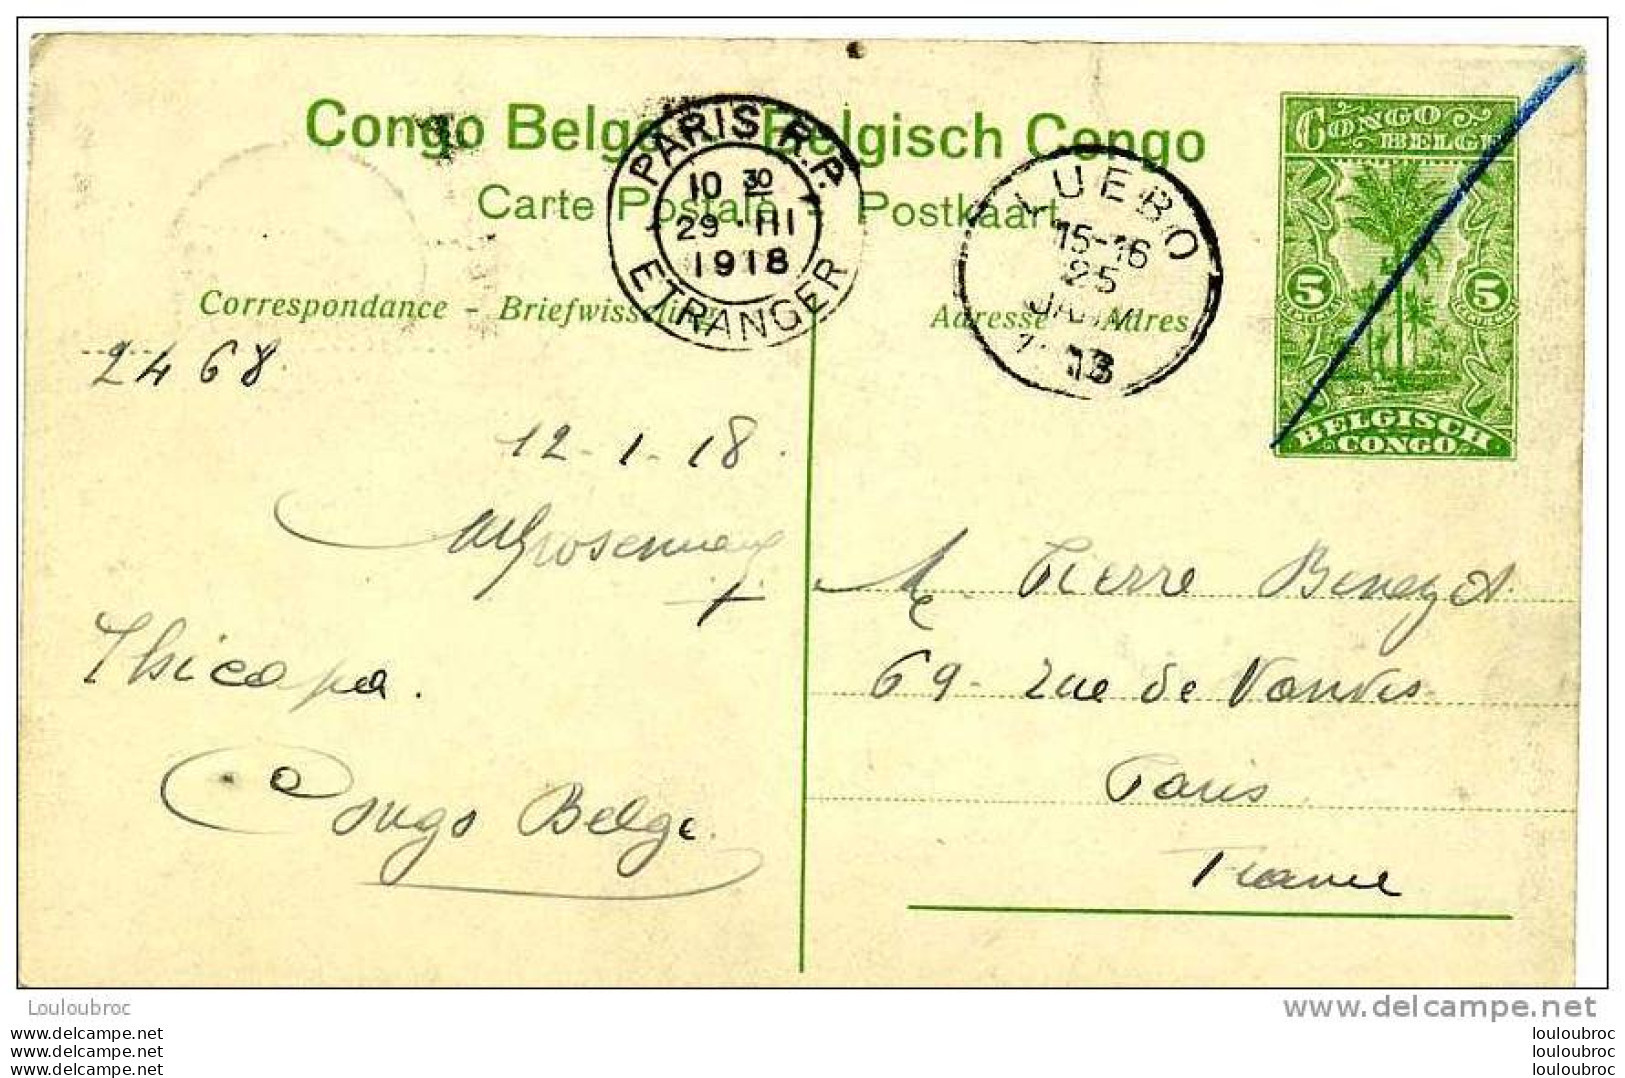 Congo Belge Belgisch Congo
Carte Postale Postkaart
Correspondance - Briefwisseling
Adresse Adres
PARIS R.P.
10 30
29 · III
1918
ETRANGER
LUEBO
15-16
25
JANV
CONGO
BELGE
5 5
BELGISCH
CONGO
2468.
12-1-18.
Thicapa.
Congo Belge.
M. Pierre Benezet.
69 rue de Vanves
Paris
France
Louloubroc
www.delcampe.net
www.delcampe.net
www.delcampe.net
www.delcampe.net
louloubroc
louloubroc
louloubroc